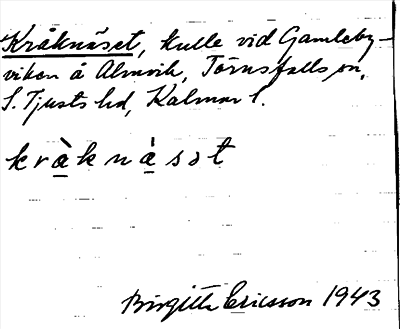 Kråknäset, kulle vid Gamleby-
viken å Almvik, Törnsfalls sn,
S. Tjusts hd, Kalmar l.
kràknásət
Birgitta Ericsson 1943